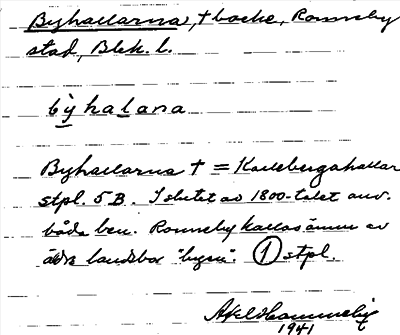 Byhallarna, + backe, Ronneby
stad, Blek. l.
byhalana
Byhallarna + = Karlebergahallar
stpl. 5 B. I slutet av 1800-talet anv.
båda ben. Ronneby kallas ännu av
äldre landsbor "byen". 1 stpl.
Axel
1941